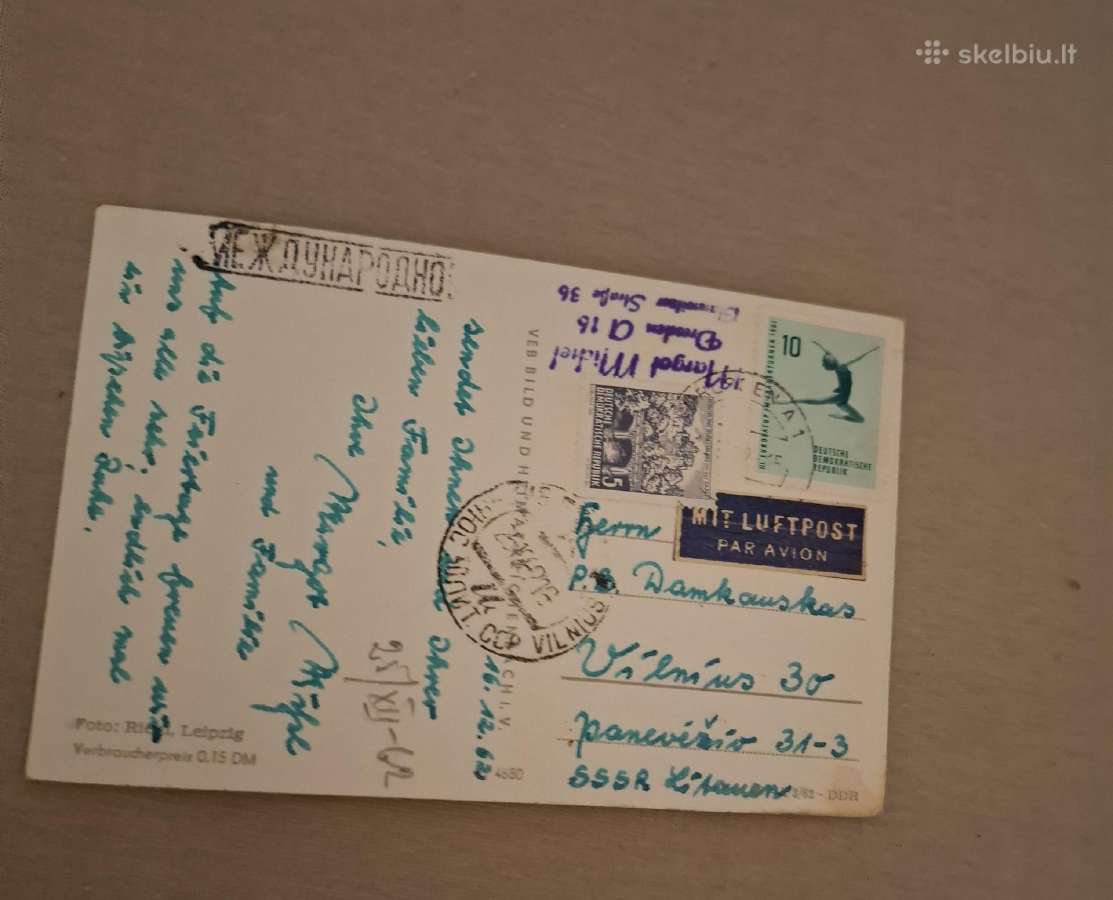 skelbiu.lt
МЕЖДУНАРОДНО
Margot Michel
Dresden A 16
Straße 36
16.12.62
sendet Ihnen Ihrer
lieben Familie,
Ihre Margot Michel
und Familie
Auf die Feiertage freuen wir
uns alle sehr, endlich mal
ein bißchen Ruhe.
25/XII-62
VEB BILD UND HEIMAT REICHENBACH I. V.
10
DEUTSCHE
DEMOKRATISCHE
REPUBLIK
DEUTSCHE
DEMOKRATISCHE
REPUBLIK
5
MIT LUFTPOST
PAR AVION
VILNIUS
Herrn
P. B. Damkauskas
Vilnius 30
Panevėžio 31-3
SSSR Litauen
Foto: Leipzig
Verbraucherpreis 0,15 DM
4550
3/62 - DDR